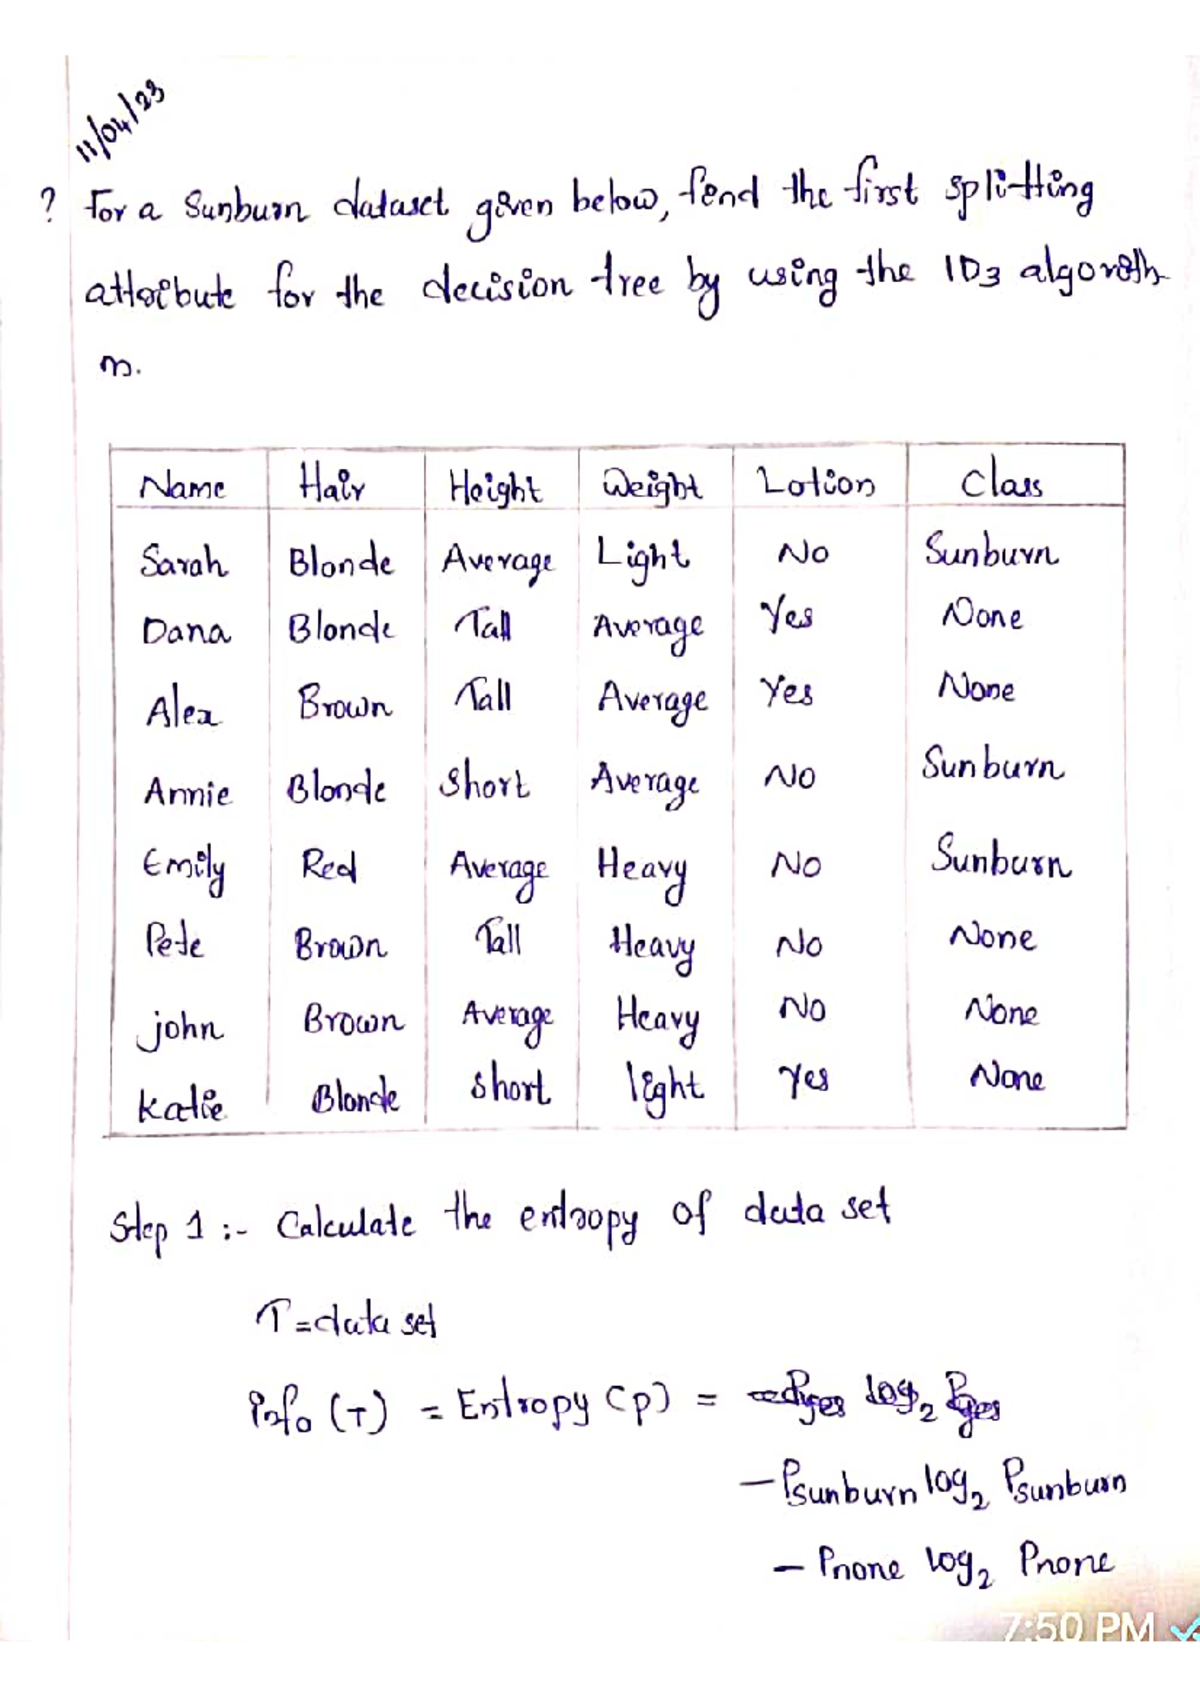 11/04/23
? For a Sunburn dataset given below, find the first splitting
attribute for the decision tree by using the ID3 algorith
m.
Name Hair Height Weight Lotion Class
Sarah Blonde Average Light No Sunburn
Dana Blonde Tall Average Yes None
Alex Brown Tall Average Yes None
Annie Blonde Short Average No Sunburn
Emily Red Average Heavy No Sunburn
Pete Brown Tall Heavy No None
john Brown Average Heavy No None
Katie Blonde short light Yes None
Step 1 :- Calculate the entropy of data set
T = data set
info (T) = Entropy (p) = log₂ Pyes
- Psunburn log₂ Psunburn
- Pnone log₂ Pnone
7:50 PM